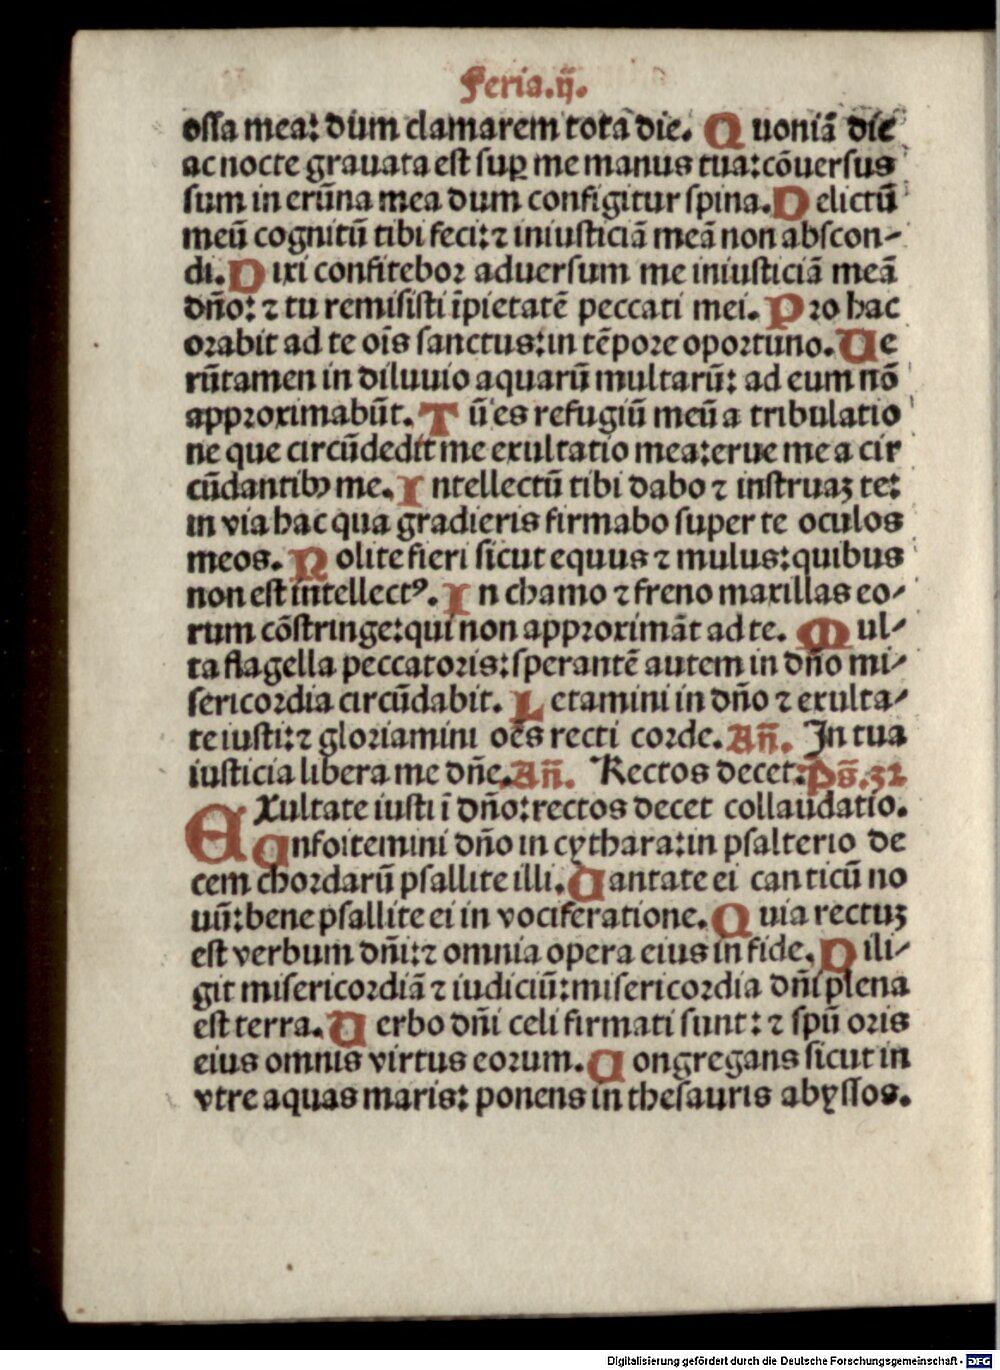 Feria.ij.
ossa mea: dum clamarem tota die. Quoniā die
ac nocte grauata est suꝑ me manus tua: cōuersus
sum in erūna mea dum configitur spina. Delictū
meū cognitū tibi feci: ⁊ iniusticiā meā non abscon-
di. Dixi confitebor aduersum me iniusticiā meā
dn̄o: ⁊ tu remisisti īpietatē peccati mei. Pro hac
orabit ad te oīs sanctus: in tēpore oportuno. Ue
rūtamen in diluuio aquarū multarū: ad eum nō
approximabūt. Tū es refugiū meū a tribulatio
ne que circūdedit me exultatio mea: erue me a cir
cūdantibꝰ me. Intellectū tibi dabo ⁊ instruaꝫ te:
in via hac qua gradieris firmabo super te oculos
meos. Nolite fieri sicut equus ⁊ mulus: quibus
non est intellectꝰ. In chamo ⁊ freno maxillas eo-
rum cōstringe: qui non approximāt ad te. Mul-
ta flagella peccatoris: sperantē autem in dn̄o mi-
sericordia circūdabit. Letamini in dn̄o ⁊ exulta-
te iusti: ⁊ gloriamini oēs recti corde. Añ. In tua
iusticia libera me dn̄e. Añ. Rectos decet. Ps̄. 32
EXultate iusti ī dn̄o: rectos decet collaudatio.
Cōnfoitemini dn̄o in cythara: in psalterio de
cem chordarū psallite illi. Cantate ei canticū no
uū: bene psallite ei in vociferatione. Quia rectuꝫ
est verbum dn̄i: ⁊ omnia opera eius in fide. Dili-
git misericordiā ⁊ iudiciū: misericordia dn̄i plena
est terra. Uerbo dn̄i celi firmati sunt: ⁊ spū oris
eius omnis virtus eorum. Congregans sicut in
vtre aquas maris: ponens in thesauris abyssos.
Digitalisierung gefördert durch die Deutsche Forschungsgemeinschaft - DFG